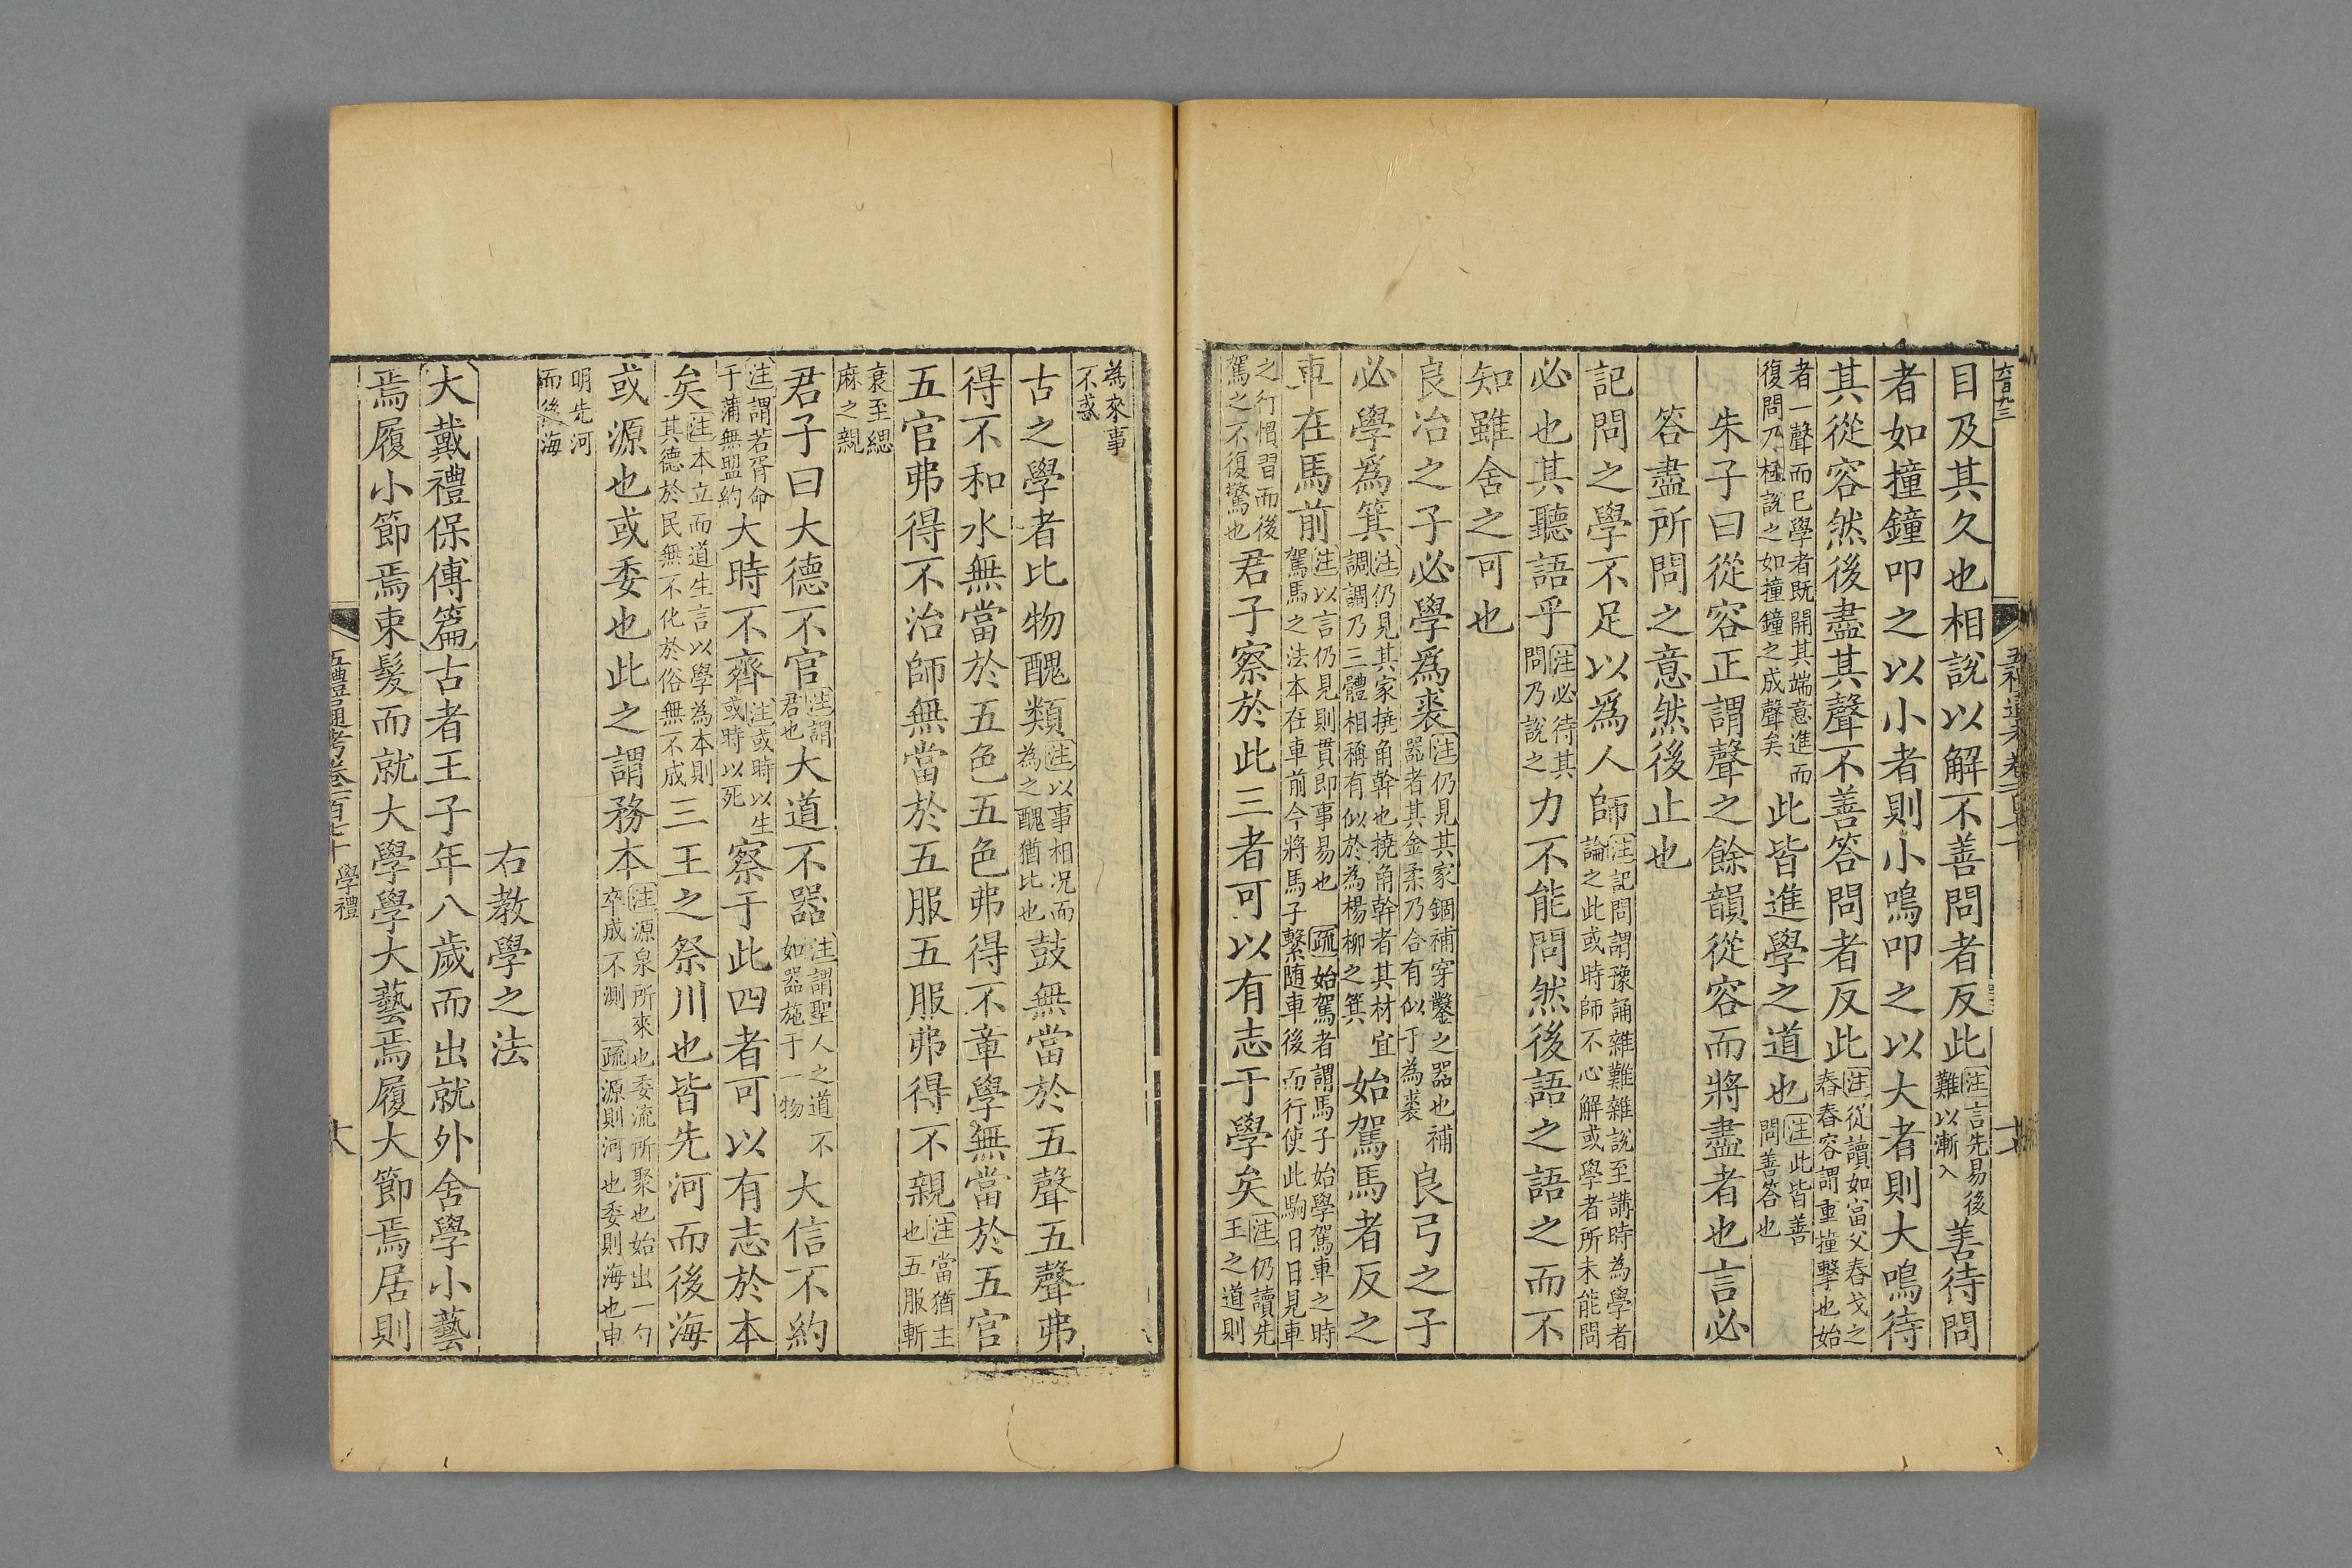 目及其久也相説以解不善問者反此注言先易後難以漸入善待問
者如撞鐘叩之以小者則小鳴叩之以大者則大鳴待
其從容然後盡其聲不善答問者反此注從讀如富父舂戈之舂舂容謂重撞擊也始
者一聲而已學者既開其端意進而復問乃極說之如撞鐘之成聲矣此皆進學之道也注此皆善問善答也
朱子曰從容正謂聲之餘韻從容而將盡者也言必
答盡所問之意然後止也
記問之學不足以爲人師注記問謂豫誦雜難雜說至講時為學者論之此或時師不心解或學者所未能問
必也其聽語乎注必待其問乃說之力不能問然後語之語之而不
知雖舍之可也
良冶之子必學爲裘注仍見其家錮補穿鑿之器也補器者其金柔乃合有似于為裘良弓之子
必學爲箕注仍見其家撓角幹也撓角幹者其材宜調調乃三體相稱有似於為楊柳之箕始駕馬者反之
車在馬前注以言仍見則貫即事易也疏始駕者謂馬子始學駕車之時駕馬之法本在車前今將馬子繫随車後而行使此駒日日見車
之行慣習而後駕之不復驚也君子察於此三者可以有志于學矣注仍讀先王之道則
為來事不惑
古之學者比物醜類注以事相况而為之醜猶比也鼓無當於五聲五聲弗
得不和水無當於五色五色弗得不章學無當於五官
五官弗得不治師無當於五服五服弗得不親注當猶主也五服斬
衰至緦麻之親
君子曰大德不官注謂君也大道不器注謂聖人之道不如器施于一物大信不約
注謂若胥命于蒲無盟約大時不齊注或時以生或時以死察于此四者可以有志於本
矣注本立而道生言以學為本則其德於民無不化於俗無不成三王之祭川也皆先河而後海
或源也或委也此之謂務本注源泉所來也委流所聚也始出一勺卒成不測疏源則河也委則海也申
明先河而後海
右教學之法
大戴禮保傅篇古者王子年八歲而出就外舍學小藝
焉履小節焉束髮而就大學學大藝焉履大節焉居則
五禮通考卷一百七十 學禮